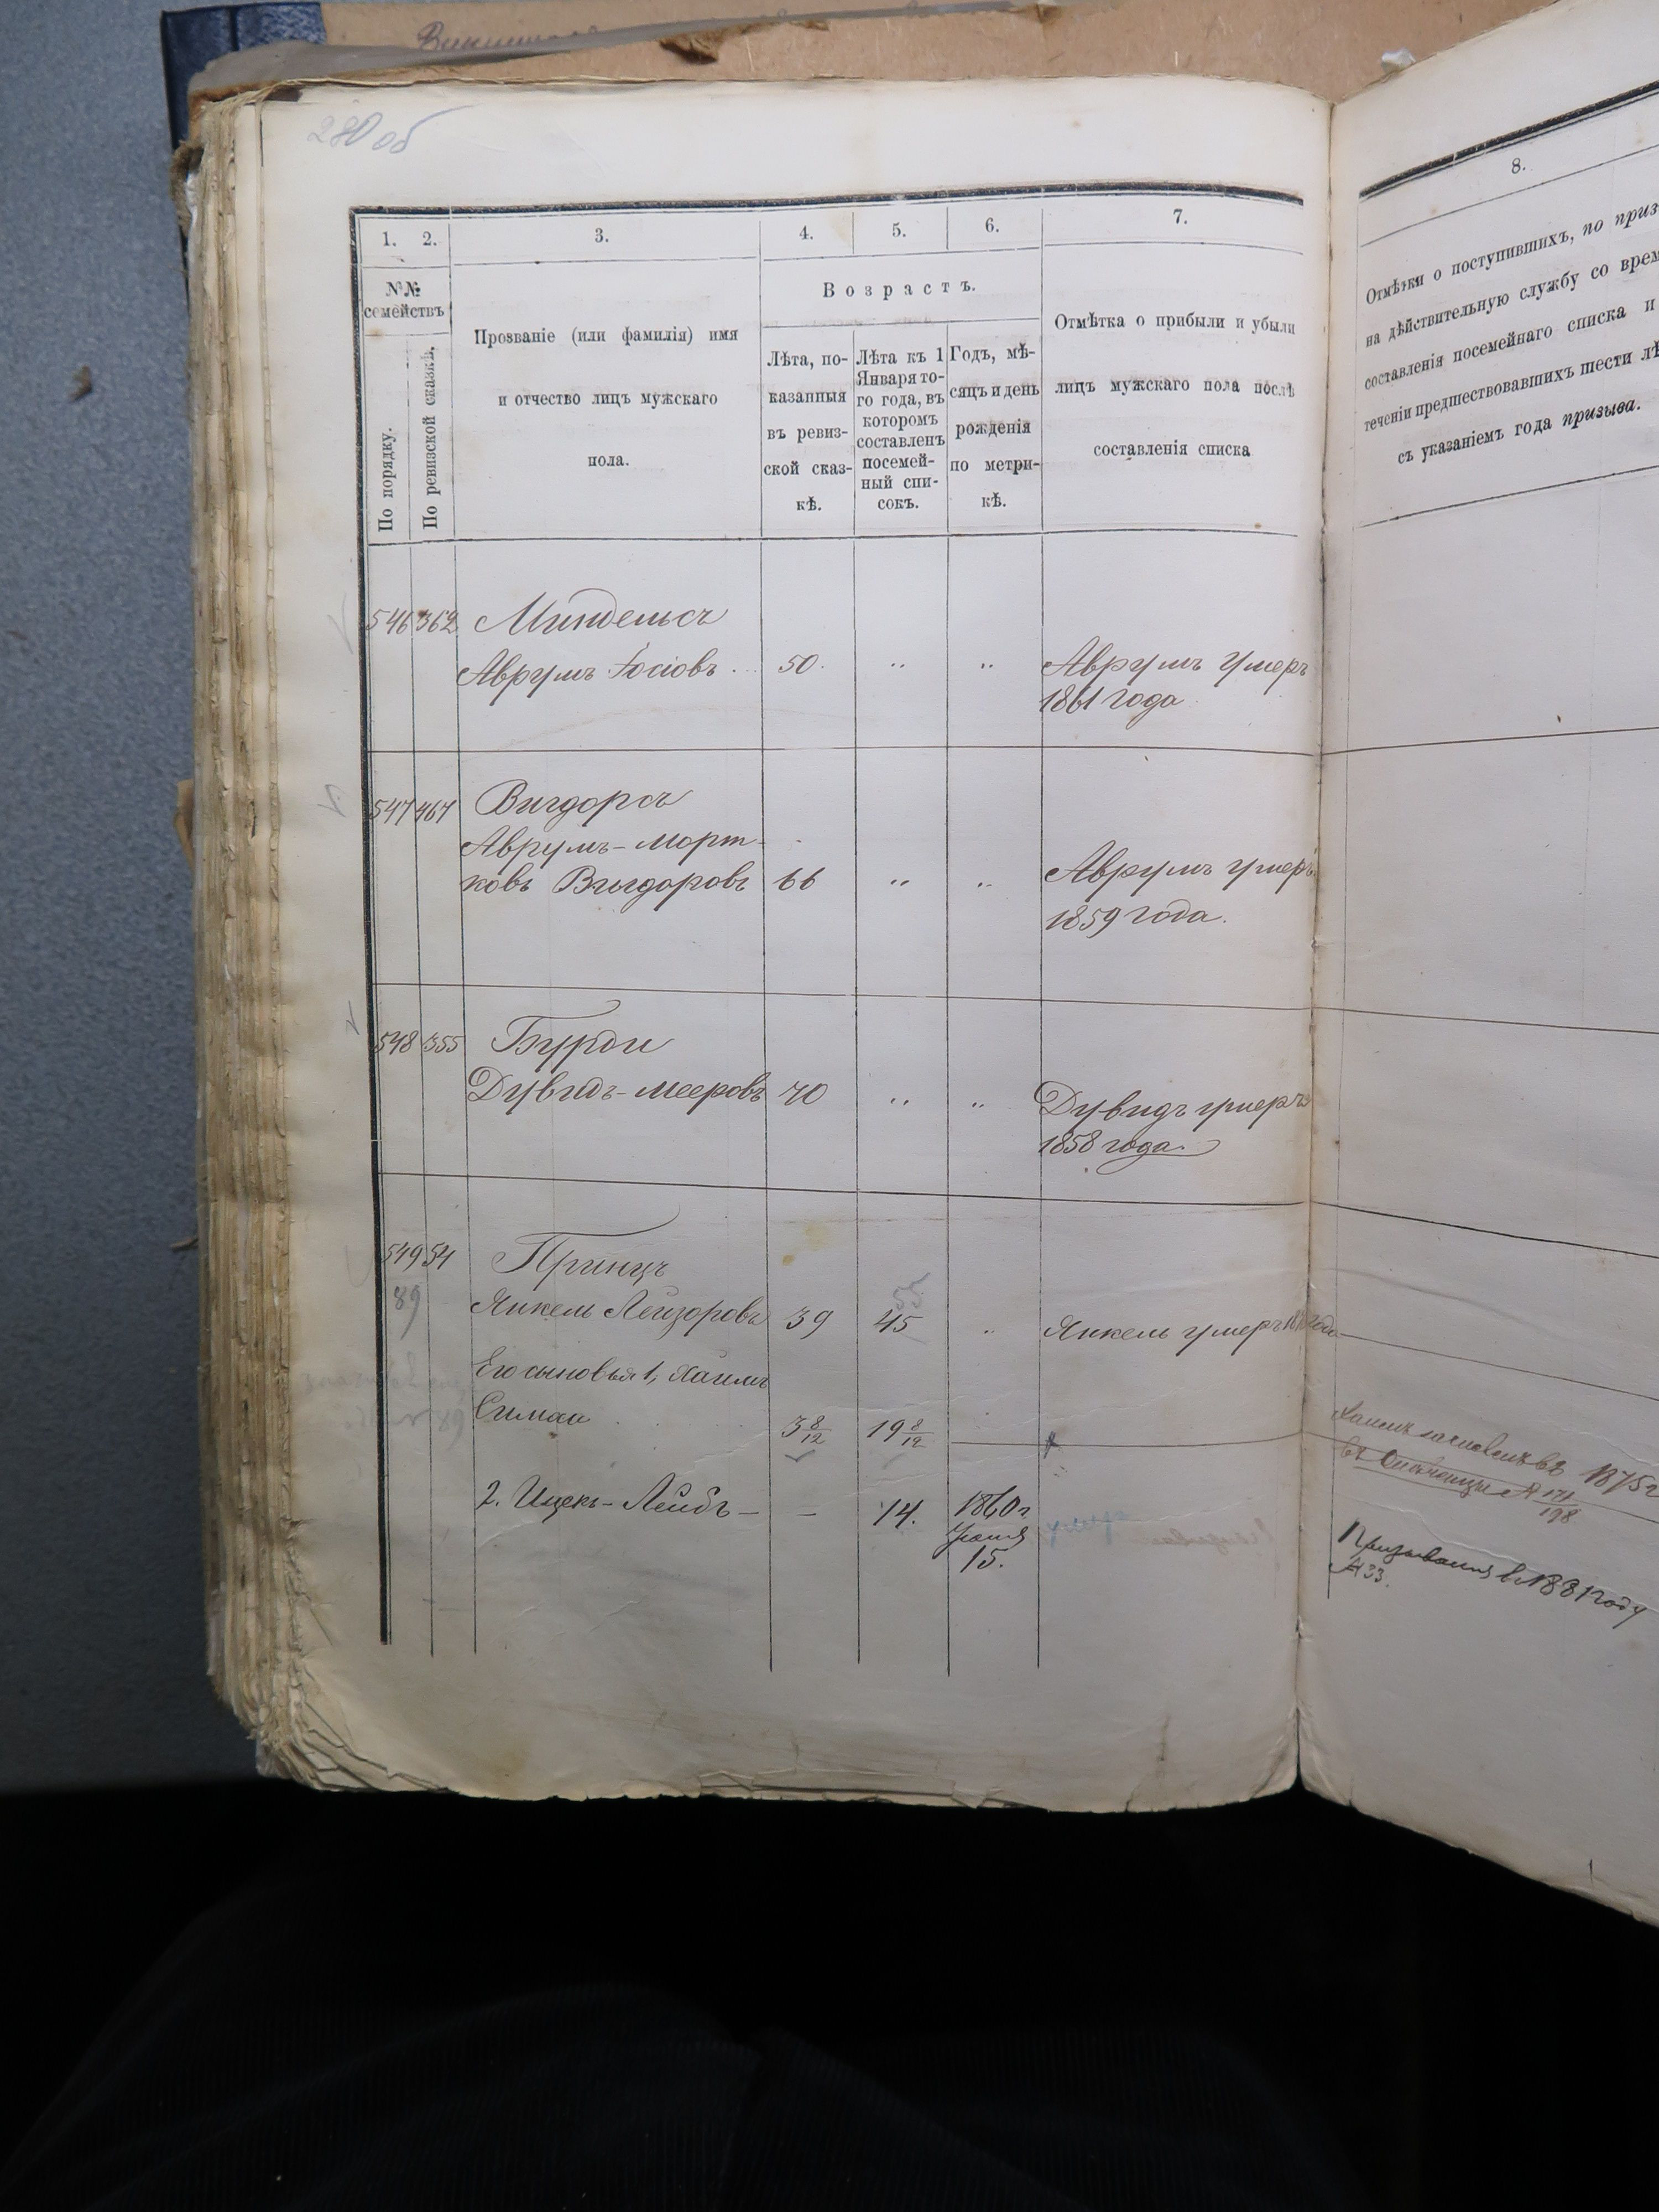 280 об
1. 2. 3. 4. 5. 6. 7.
№№
семействъ
По порядку.
По ревизской сказкѣ.
Прозваніе (или фамилія) имя
и отчество лицъ мужскаго
пола.
Возрастъ.
Лѣта, по-
казанныя
въ ревиз-
ской сказ-
кѣ.
Лѣта къ 1
Января то-
го года, въ
которомъ
составленъ
посемей-
ный спи-
сокъ.
Годъ, мѣ-
сяцъ и день
рожденія
по метри-
кѣ.
Отмѣтка о прибыли и убыли
лицъ мужскаго пола послѣ
составленія списка
546 362 Миндельсъ
Аврумъ Іосіовъ 50 " " Аврумъ умеръ
1861 года
547 467 Вигдорсъ
Аврумъ-Морт-
ковъ Вигдоровъ 66 " " Аврумъ умеръ
1859 года.
548 355 Бурди
Дувидъ-Мееровъ 70 " " Дувидъ умеръ
1858 года.
549 54 Принцъ
89
55
Янкель Лейзоровъ 39 45 " Янкель умеръ года
Его сыновья 1, Хаимъ
Симха 3 8/12 19 8/12
2. Ицекъ-Лейбъ — — 14. 1860 г.
15.
8.
Отмѣтки о поступившихъ, по приз
на дѣйствительную службу со врем
составленія посемейнаго списка и
теченіи предшествовавшихъ шести лѣ
съ указаніемъ года призыва.
Хаимъ зачисленъ въ 1875 г
въ 171/198
Призывался въ 1881 году
№ 33.